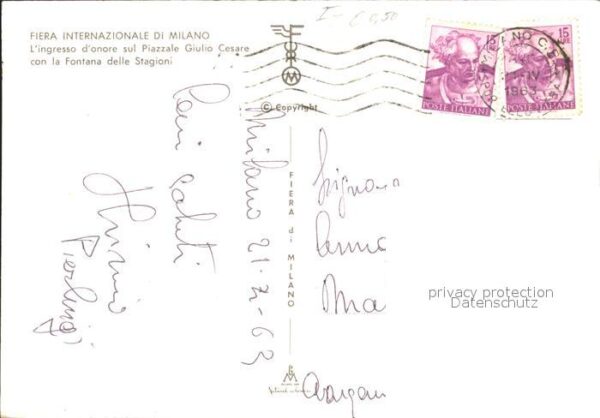 FIERA INTERNAZIONALE DI MILANO
L'ingresso d'onore sul Piazzale Giulio Cesare
con la Fontana delle Stagioni
I - € 0,50
© Copyright
15
LIRE
POSTE ITALIANE
15
LIRE
POSTE ITALIANE
MILANO
1963
FIERA di MILANO
Milano 21-4-63
Cari saluti
Pierluigi
Signora
Anna
privacy protection
Datenschutz